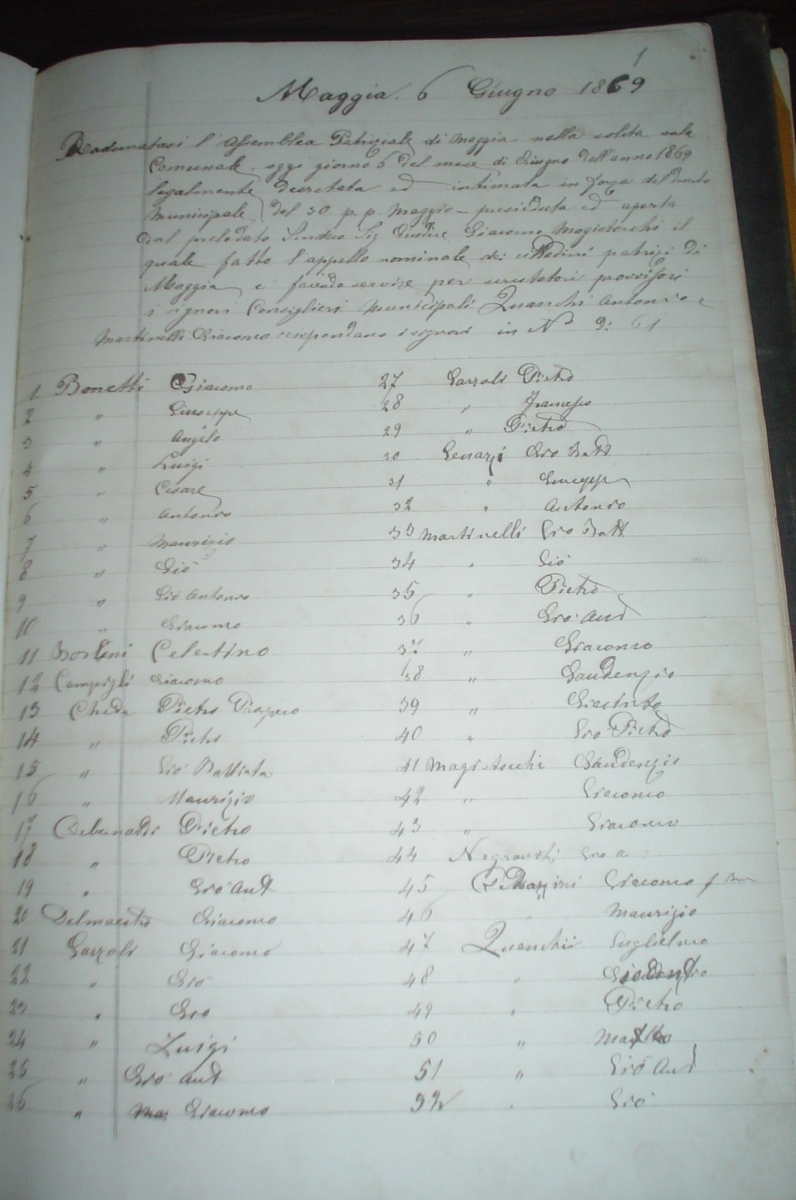 1
Maggia. 6 Giugno 1869
Radunatasi l'Assemblea Patriziale di Maggia nella solita sala
Comunale oggi giorno 6 del mese di Giugno dell'anno 1869
legalmente decretata ed intimata in forza del
Municipale del 30 p.p. Maggio - presieduta ed aperta
dal prelodato Sindaco Sig Giudice Giacomo Magistocchi il
quale fatto l'appello nominale dei cittadini patrizi di
Maggia e facendo servire per scrutatori provvisori
i signori Consiglieri Municipali Quanchi Antonio e
Martinelli Giacomo rispondano i signori in N° di 61
1 Bonetti Giacomo 27 Garzoli Pietro
2 " Giuseppe 28 " Francesco
3 " Angelo 29 " Pietro
4 " Luigi 30 Genazzi Gio Batt
5 " Cesare 31 " Giuseppe
6 " Antonio 32 " Antonio
7 " Maurizio 33 Martinelli Gio Batt
8 " Gio 34 " Gio
9 " Gio Antonio 35 " Pietro
10 " Giacomo 36 " Gio Ant
11 Celestino 37 " Giacomo
12 Campigli Giacomo 38 " Gaudenzio
13 Cheda Pietro 39 "
14 " Pietro 40 " Gio Pietro
15 " Gio Battista 41 Magistocchi Gaudenzio
16 " Maurizio 42 " Giacomo
17 Debernardi Pietro 43 " Giacomo
18 " Pietro 44 Gio
19 " Gio Ant 45 Giacomo
20 Delmaestro Giacomo 46 " Maurizio
21 Garzoli Giacomo 47 Quanchi Guglielmo
22 " Gio 48 "
23 " Gio 49 " Pietro
24 " Luigi 50 "
25 " Gio Ant 51 " Gio Ant
26 " Giacomo 52 " Gio